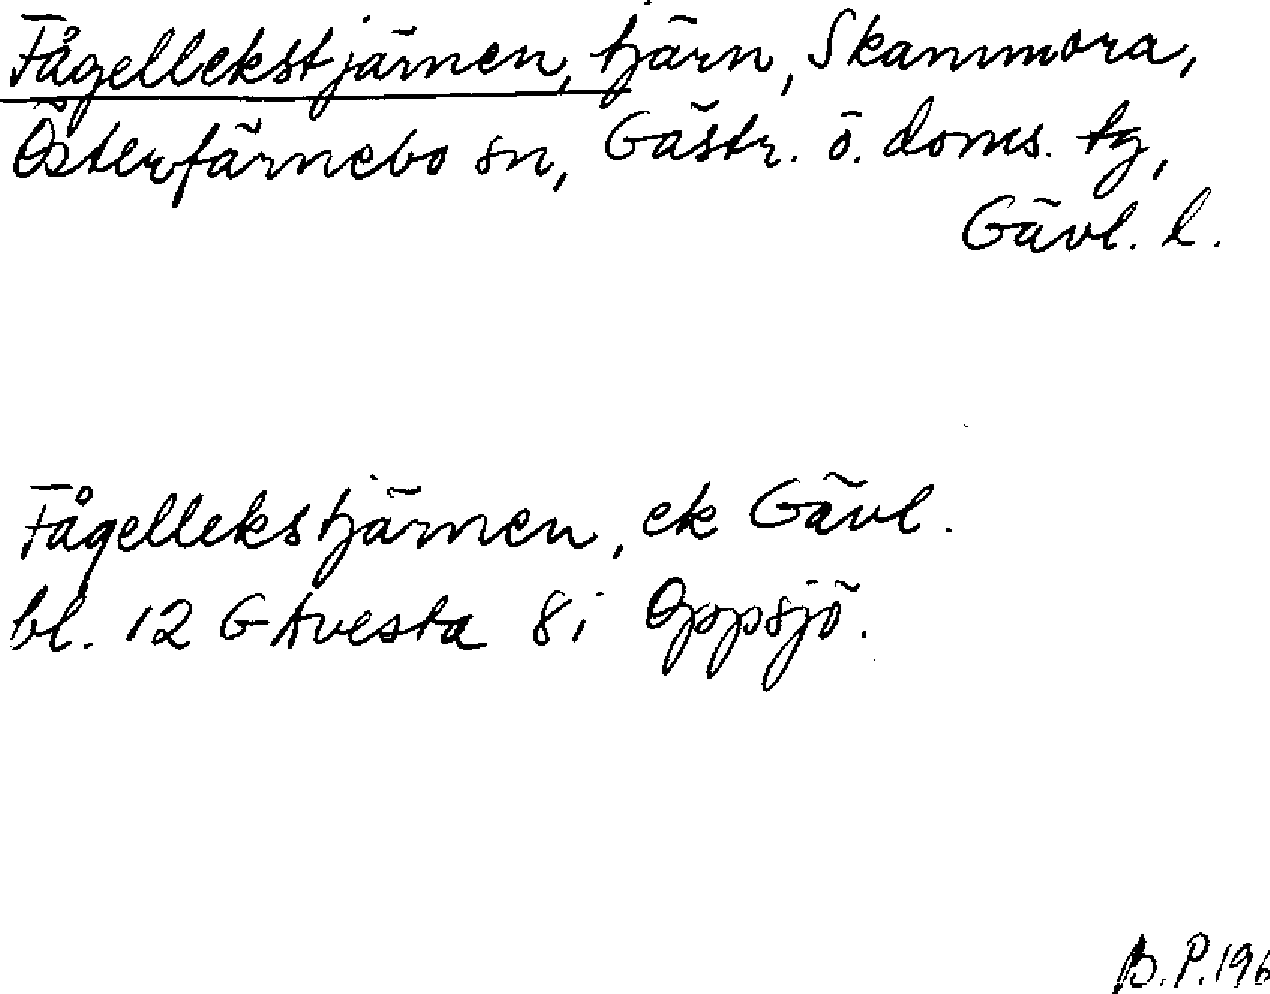 Fågellekstjärnen, tjärn, Skammora,
Österfärnebo sn, Gästr. ö. doms. tg,
Gävl. l.
Fågellekstjärnen, ek Gävl.
bl. 12 G Avesta 8 i Oppsjö.
B.P.196